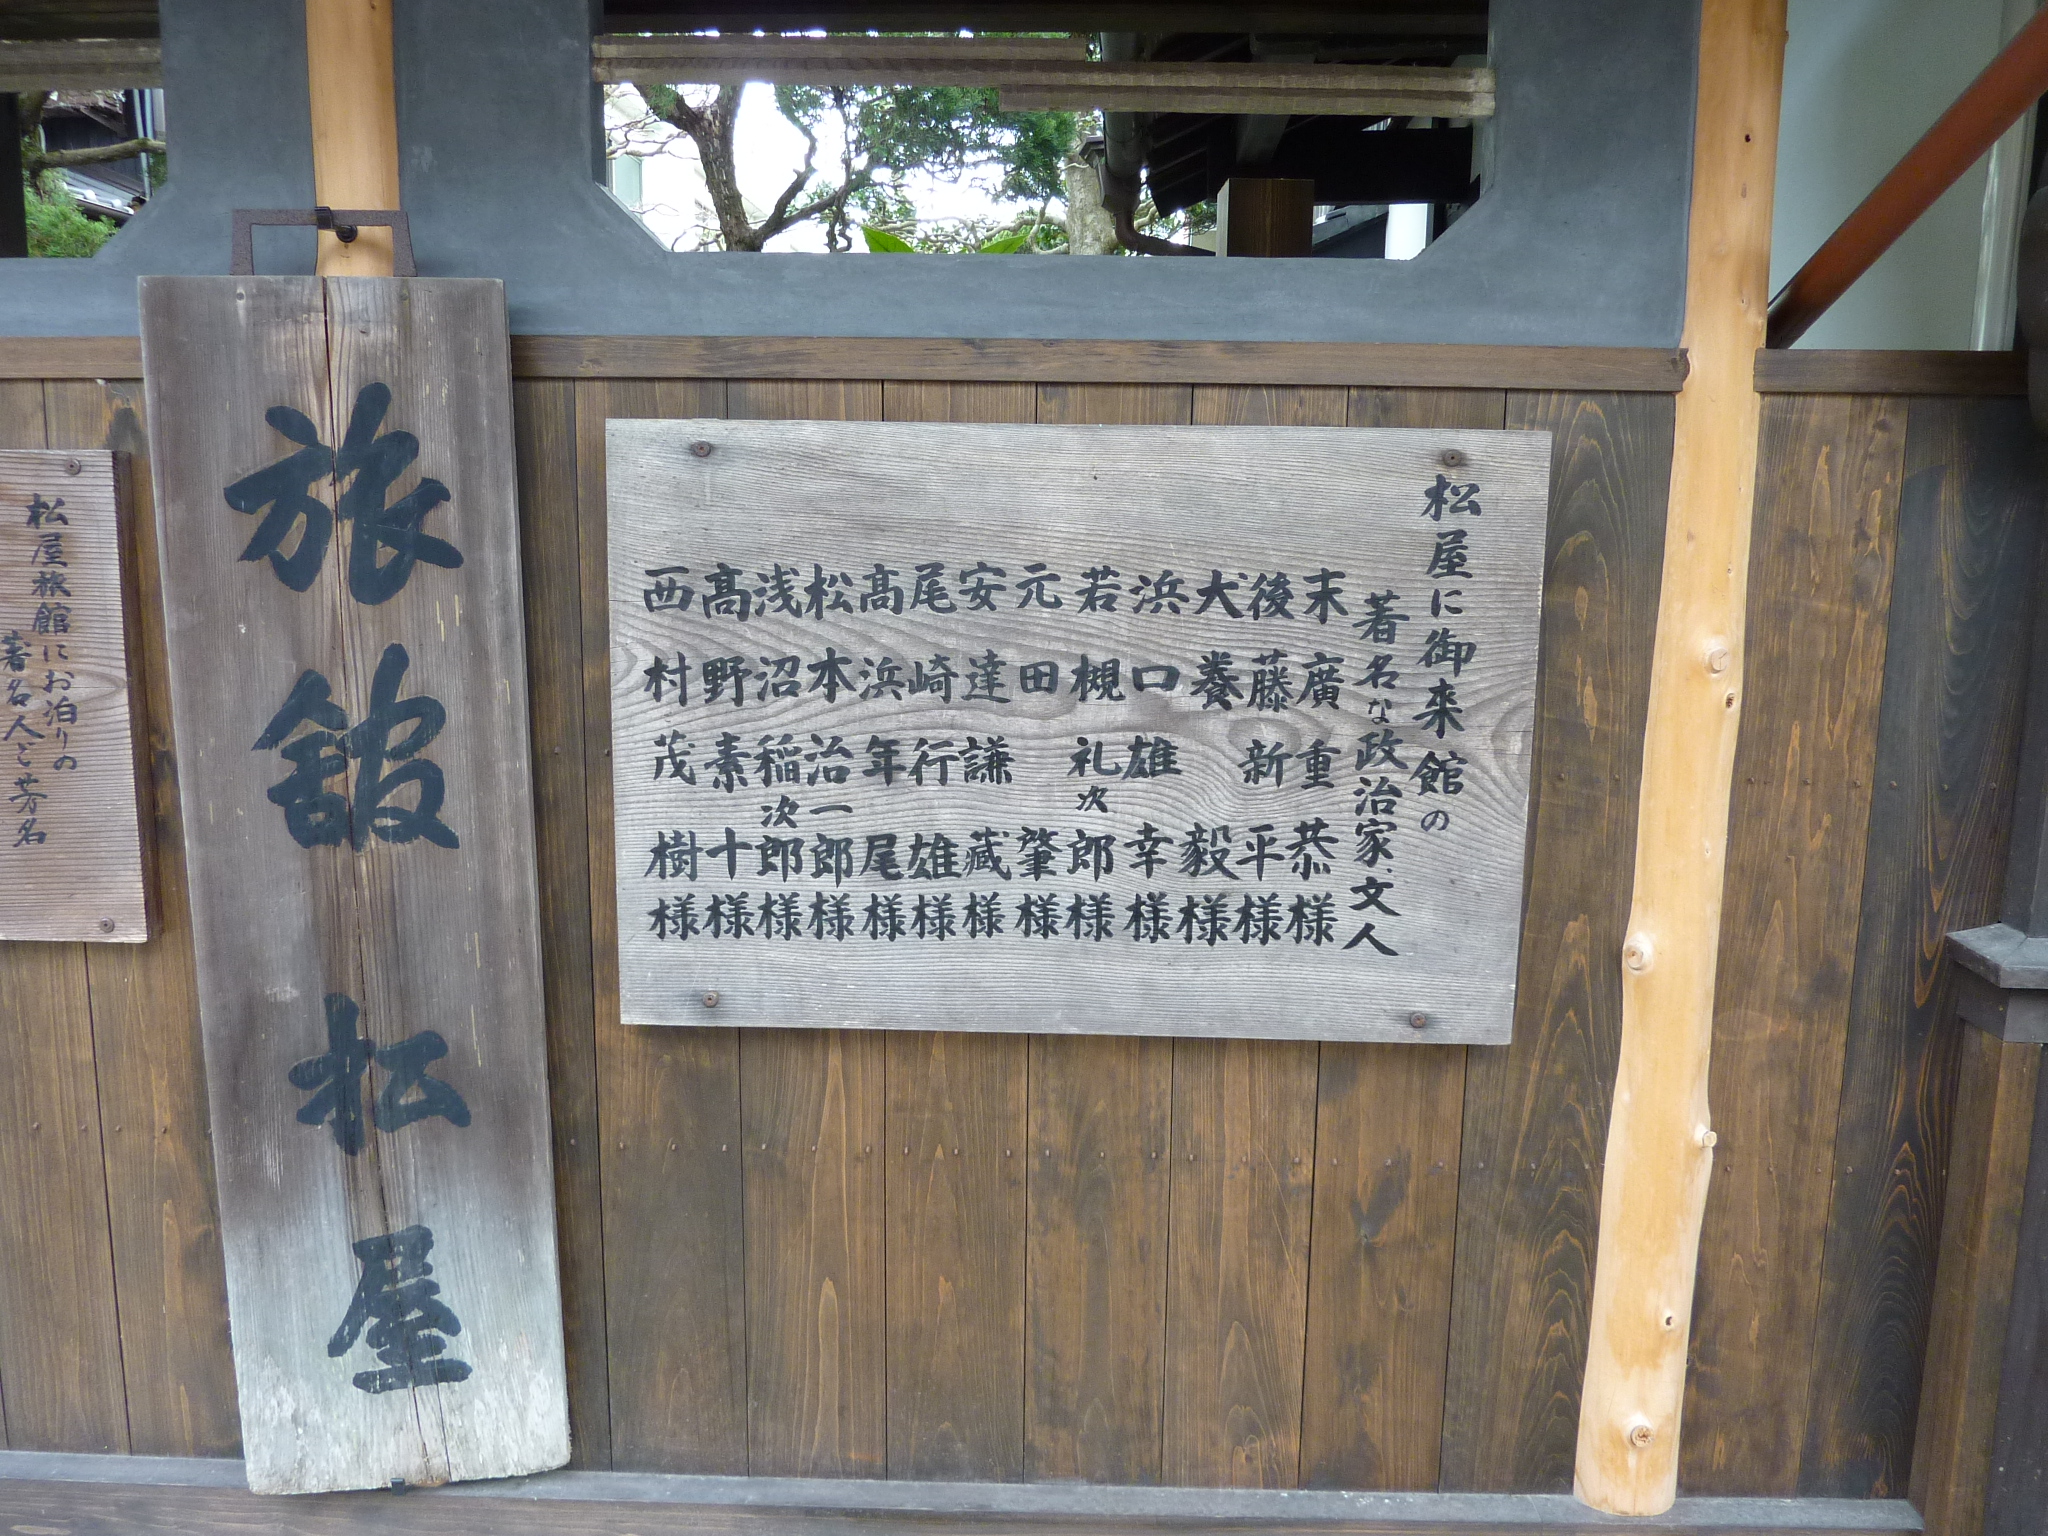 松屋に御来館の
著名な政治家、文人
末廣重恭様
後藤新平様
犬養毅様
浜口雄幸様
若槻礼次郎様
元田肇様
安達謙藏様
尾崎行雄様
髙浜年尾様
松本治一郎様
浅沼稲次郎様
髙野素十様
西村茂樹様
旅舘松屋
松屋旅館にお泊りの
著名人ご芳名